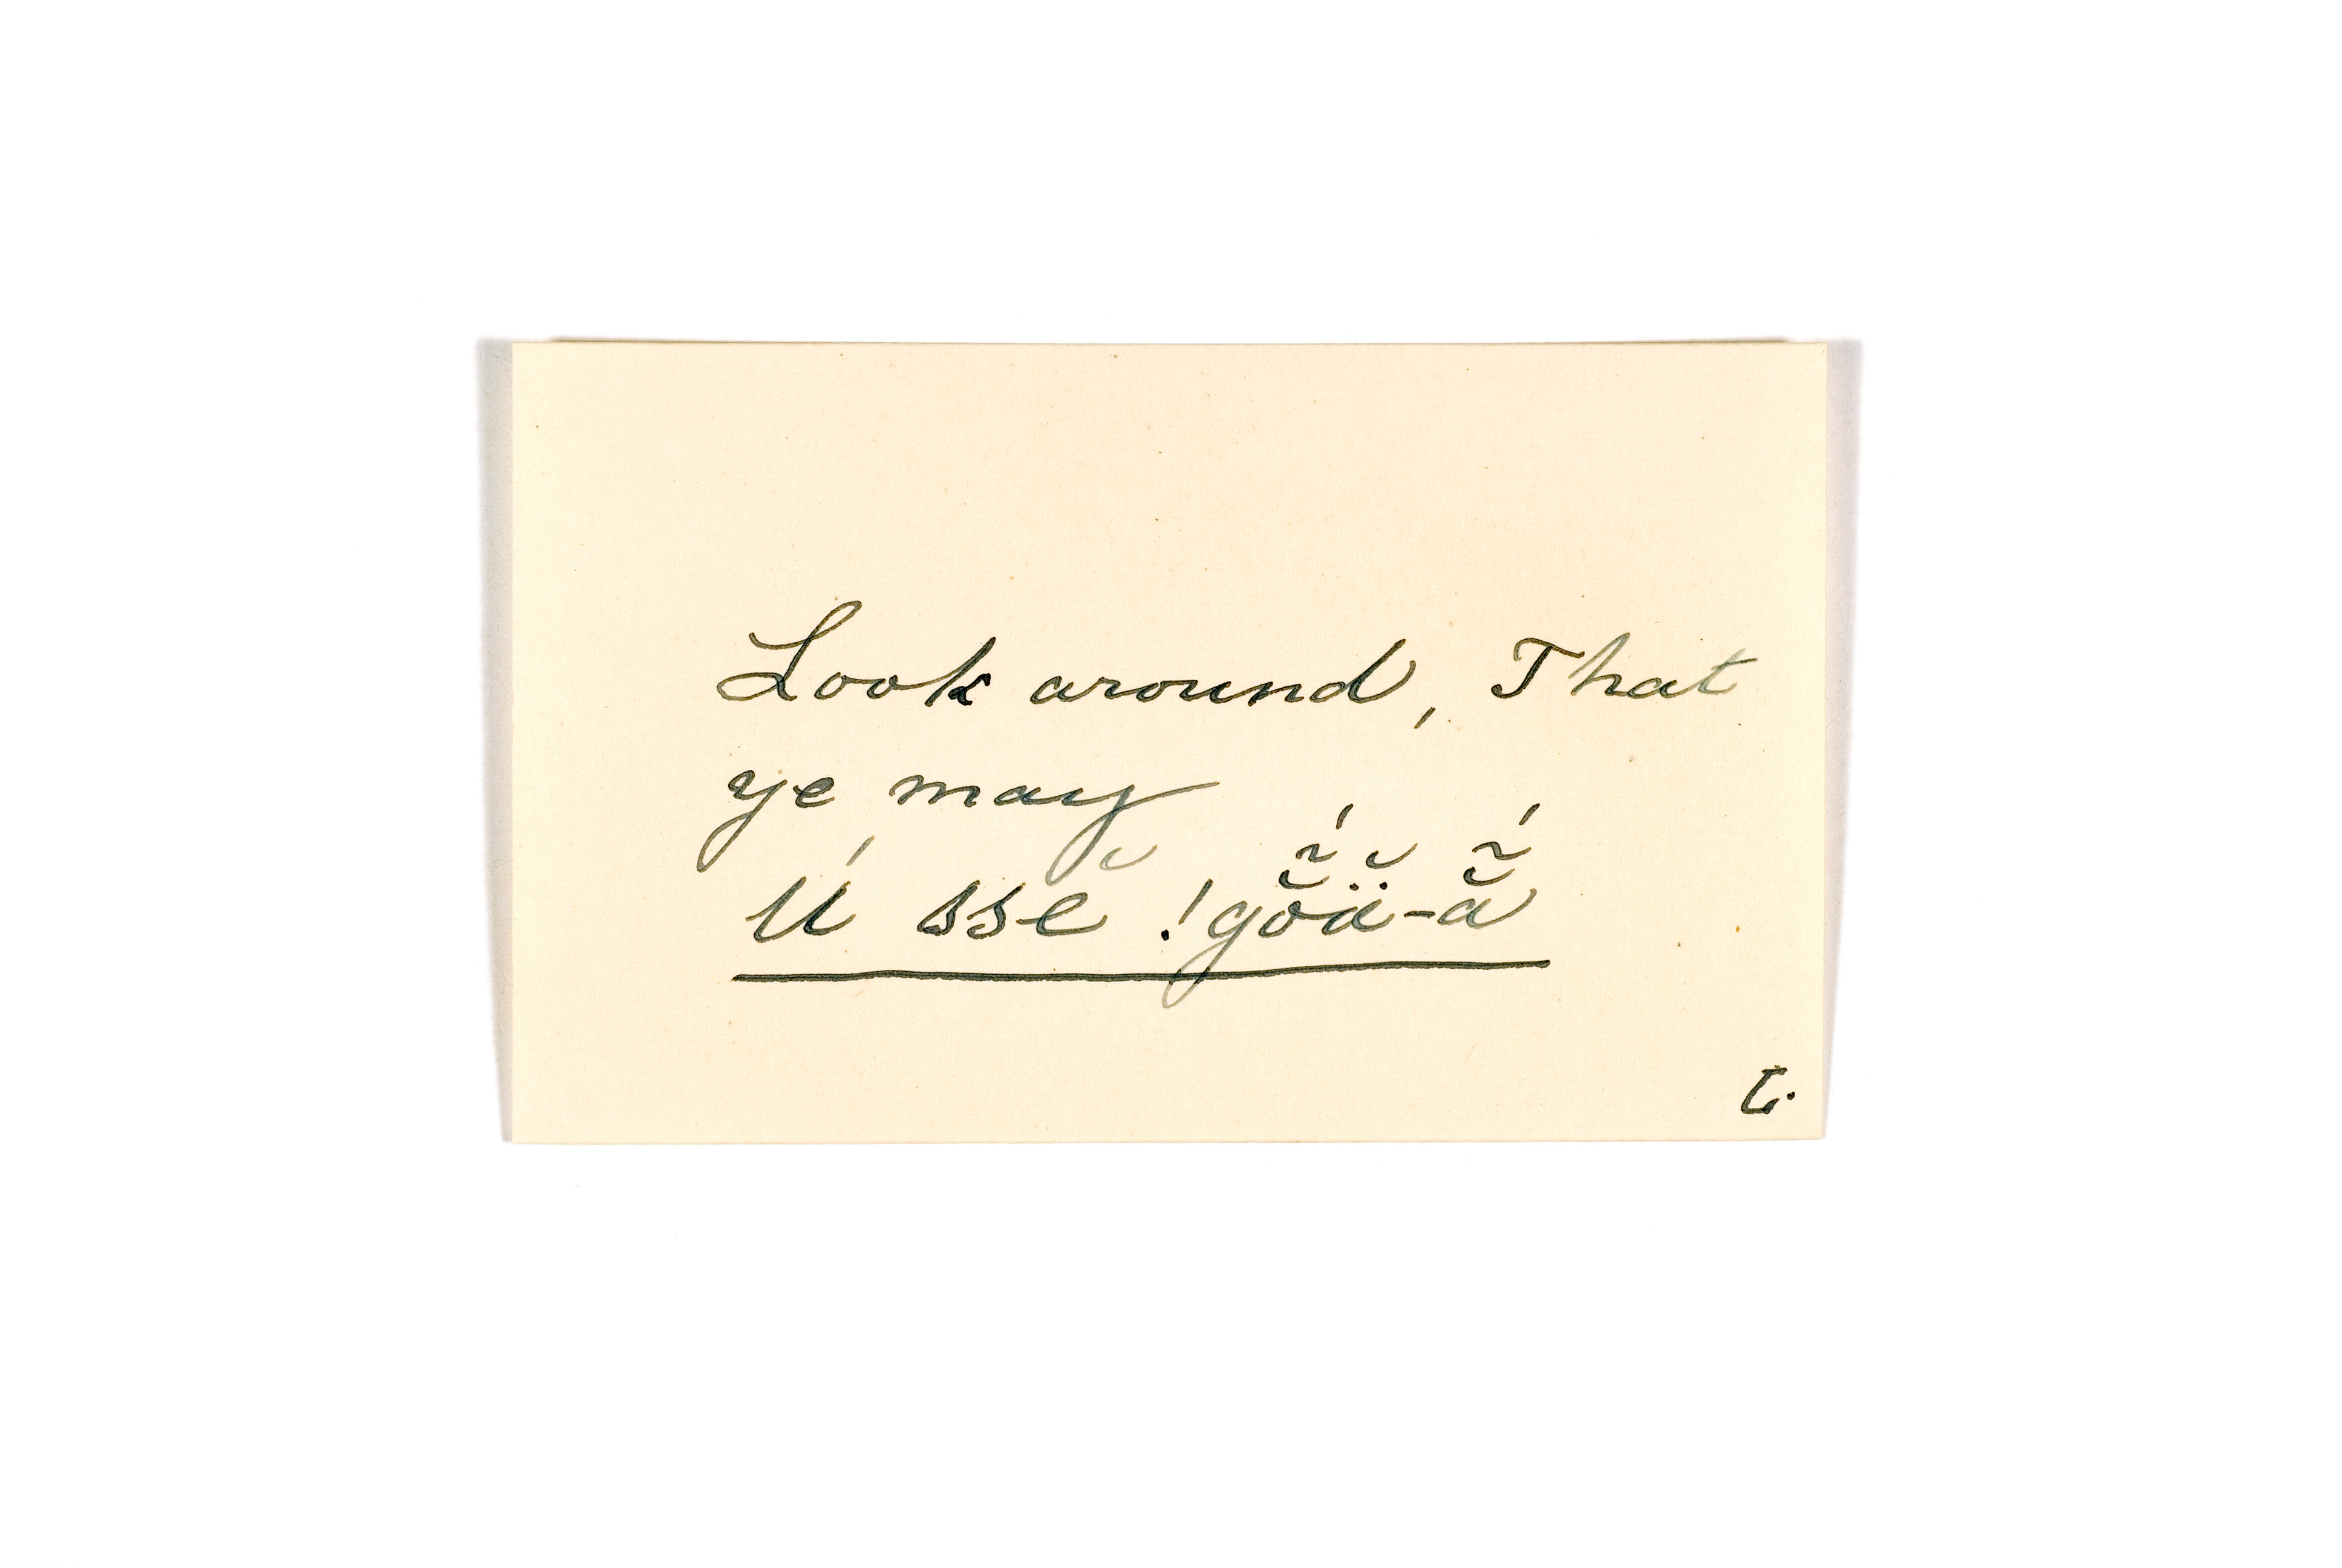 Look around, That
ye may
Ú ssĕ !gŏ̃́ä̆-ẵ́
L.